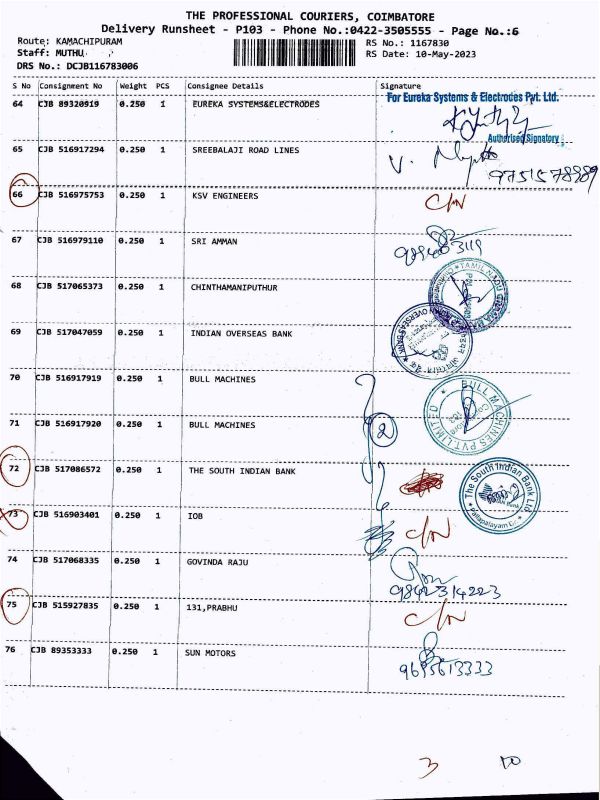 THE PROFESSIONAL COURIERS, COIMBATORE
Delivery Runsheet - P103 - Phone No.:0422-3505555 - Page No.:6
Route: KAMACHIPURAM
RS No.: 1167830
Staff: MUTHU
RS Date: 10-May-2023
DRS No.: DCJB116783006
S No Consignment No Weight PCS Consignee Details Signature
For Eureka Systems & Electrodes Pvt. Ltd.
64 CJB 89320919 0.250 1 EUREKA SYSTEMS&ELECTRODES
Authorised Signatory
65 CJB 516917294 0.250 1 SREEBALAJI ROAD LINES
9751578989
66 CJB 516975753 0.250 1 KSV ENGINEERS C/N
67 CJB 516979110 0.250 1 SRI AMMAN
68 CJB 517065373 0.250 1 CHINTHAMANIPUTHUR
TAMIL NADU
69 CJB 517047059 0.250 1 INDIAN OVERSEAS BANK
OVERSEAS BANK
70 CJB 516917919 0.250 1 BULL MACHINES
BULL MACHINES PVT. LIMITED
71 CJB 516917920 0.250 1 BULL MACHINES
2
72 CJB 517086572 0.250 1 THE SOUTH INDIAN BANK
The South Indian Bank Ltd
Pallapalayam
73 CJB 516903401 0.250 1 IOB C/N
74 CJB 517068335 0.250 1 GOVINDA RAJU
9842314223
75 CJB 515927835 0.250 1 131,PRABHU C/N
76 CJB 89353333 0.250 1 SUN MOTORS
9695613333
3 10